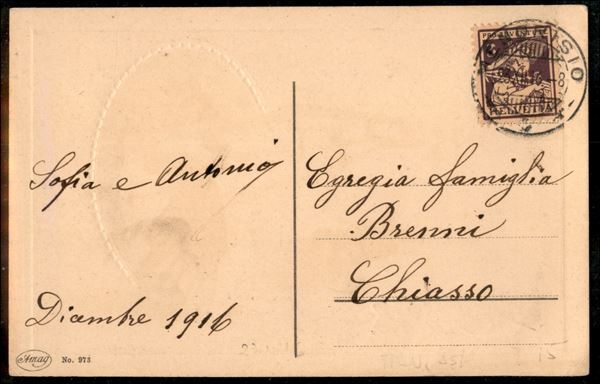 Sofia e Antonio
Dicembre 1916
Amag
No. 973
PRO JUVENTUTE
HELVETIA
Egregia famiglia
Brenni
Chiasso